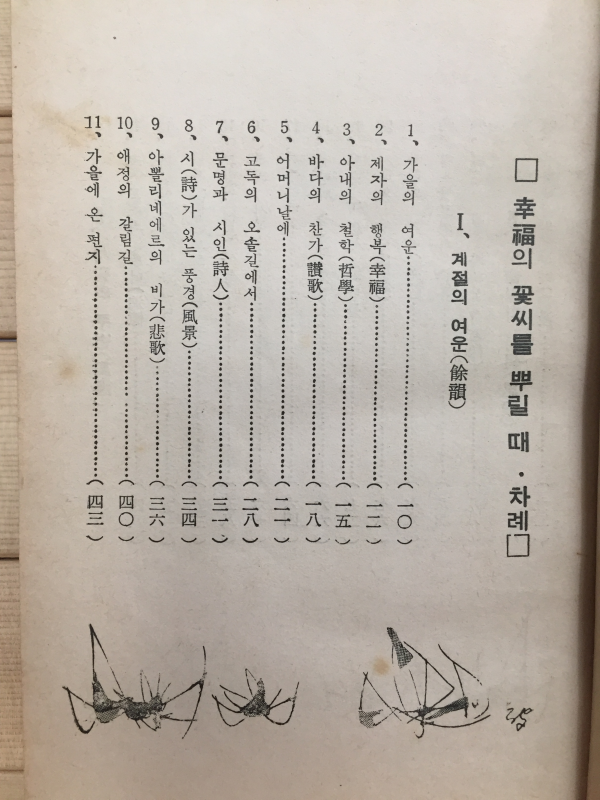 □ 幸福의 꽃씨를 뿌릴 때 · 차례 □
Ⅰ、 계절의 여운(餘韻)
1、 가을의 여운……………………………(一〇)
2、 제자의 행복(幸福)……………………(一二)
3、 아내의 철학(哲學)……………………(一五)
4、 바다의 찬가(讚歌)……………………(一八)
5、 어머니날에……………………………(二一)
6、 고독의 오솔길에서……………………(二八)
7、 문명과 시인(詩人)……………………(三一)
8、 시(詩)가 있는 풍경(風景)……………(三四)
9、 아뽈리네에르의 비가(悲歌)…………(三六)
10、 애정의 갈림길…………………………(四〇)
11、 가을에 온 편지…………………………(四三)